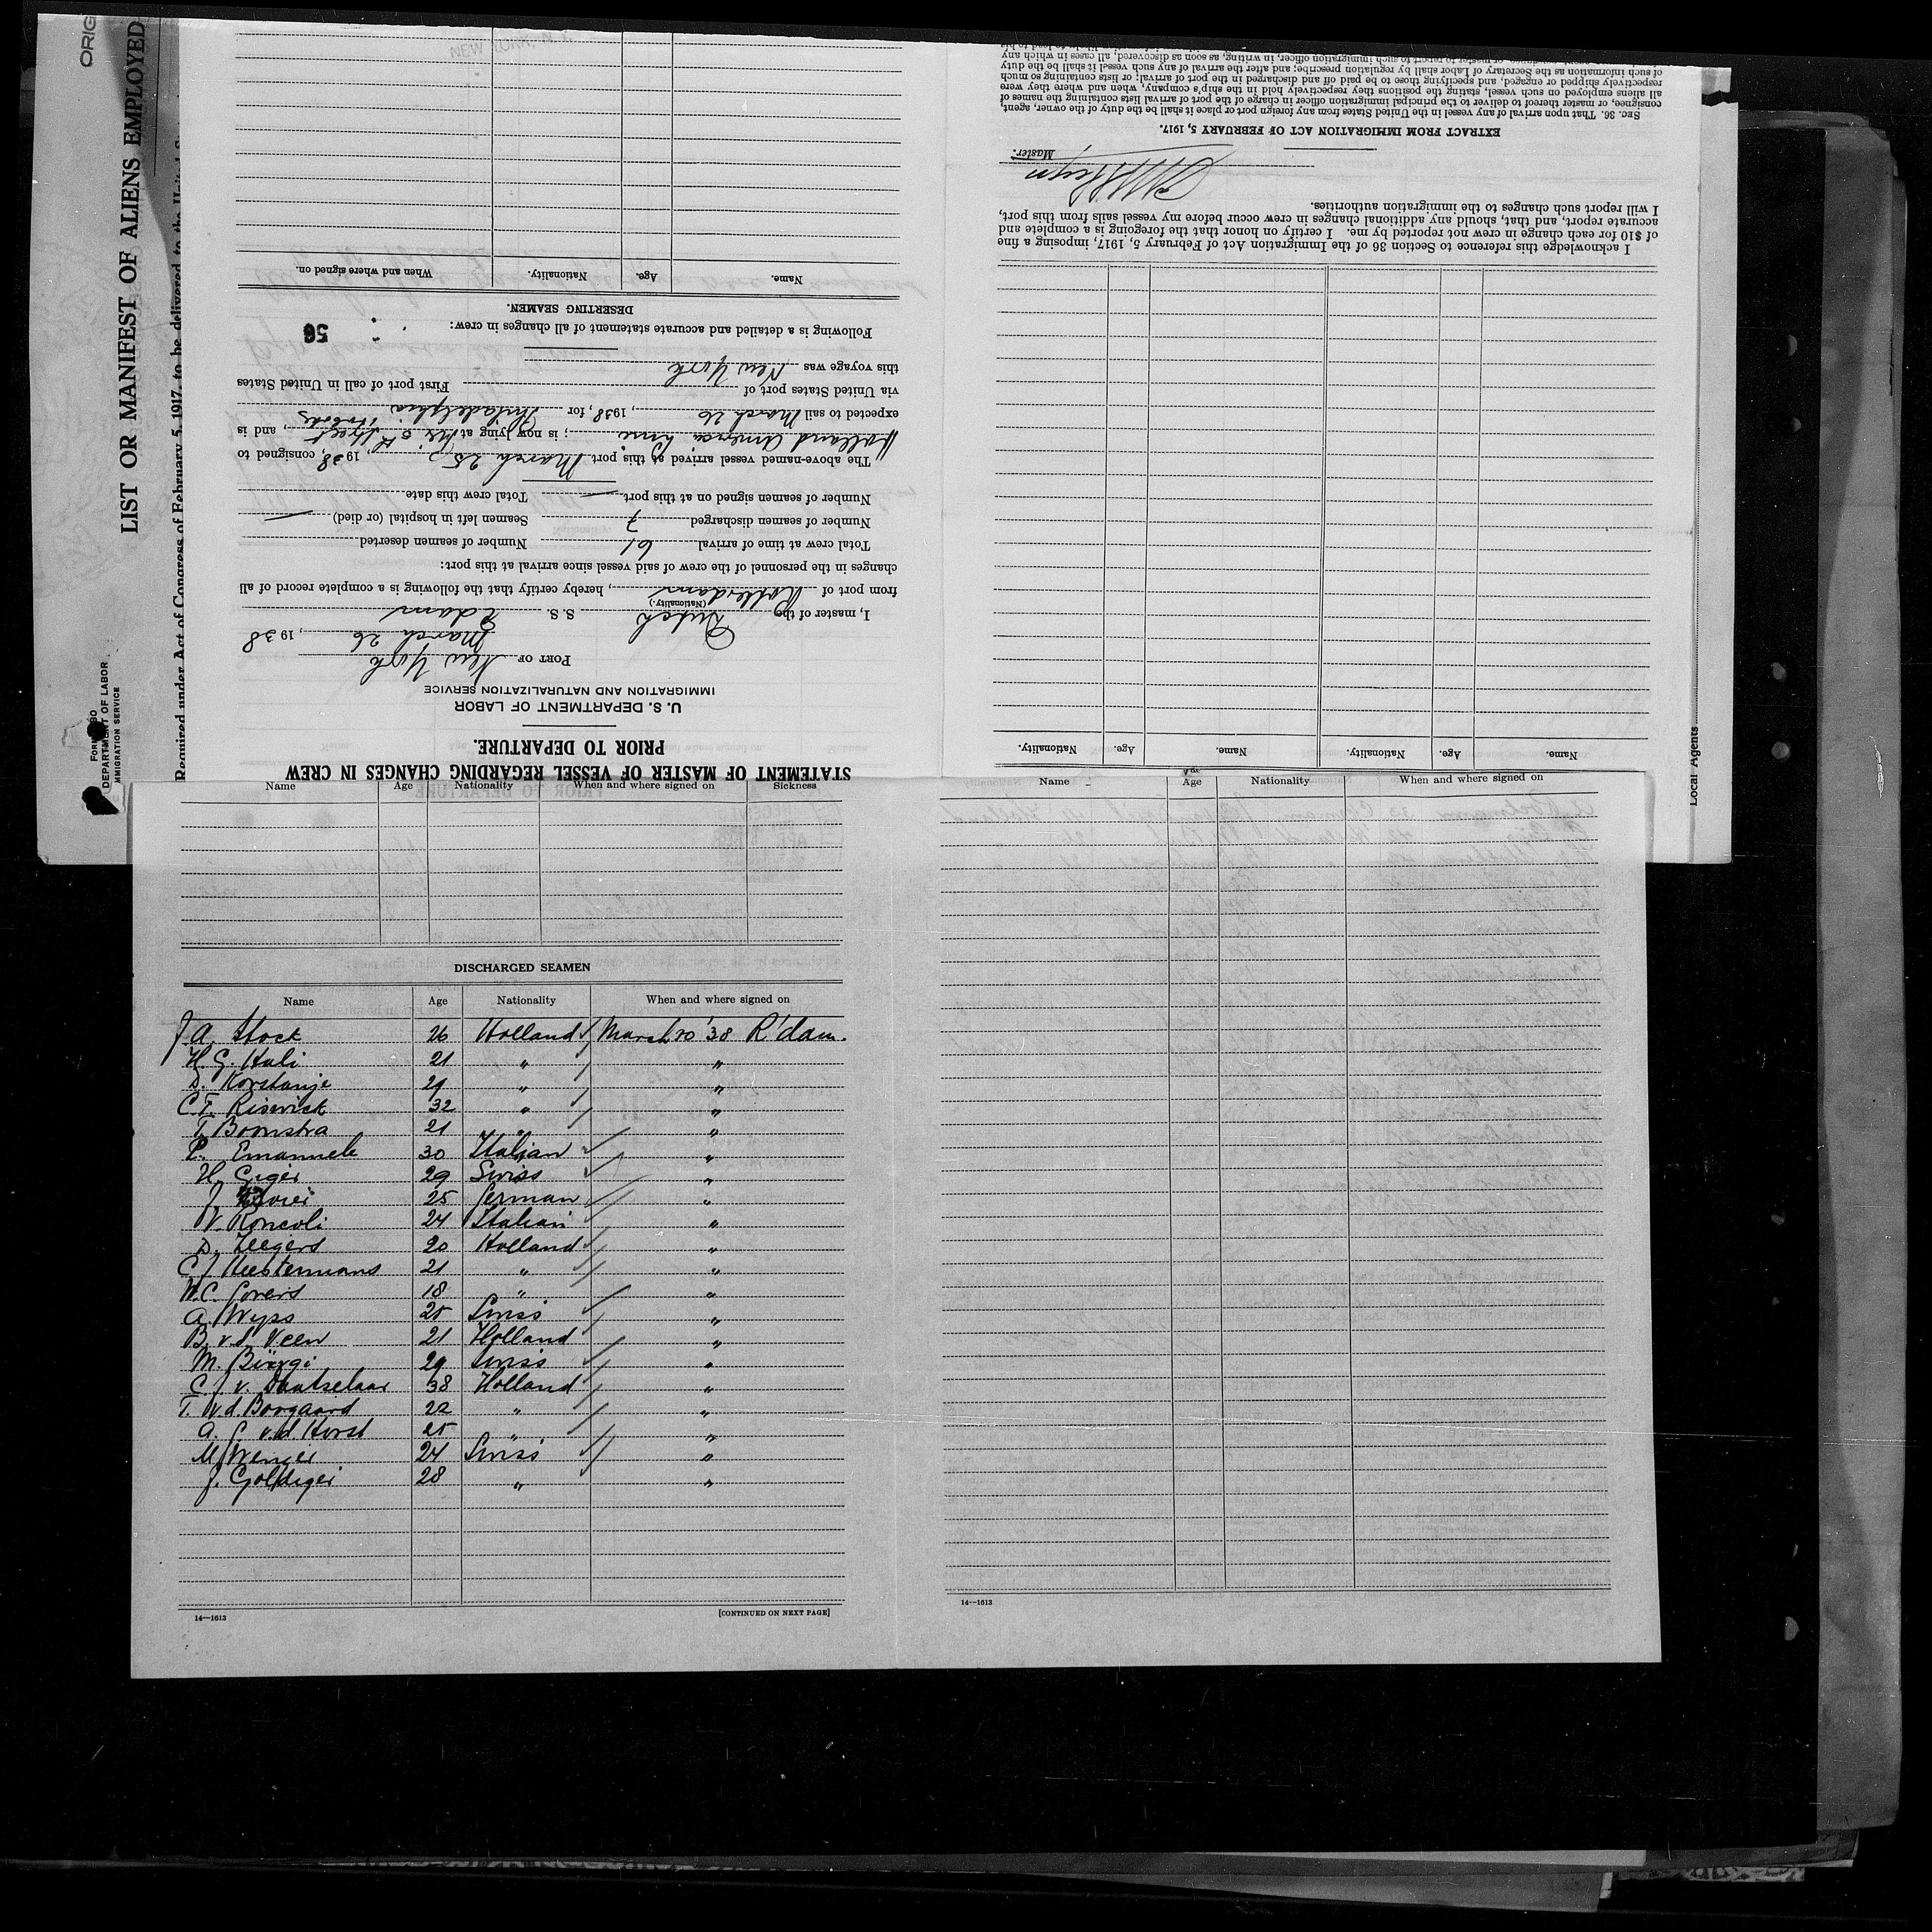 ORIG
LIST OR MANIFEST OF ALIENS EMPLOYED
Required under Act of Congress of February 5, 1917, to be delivered to the
DEPARTMENT OF LABOR
IMMIGRATION SERVICE
Local Agents
STATEMENT OF MASTER OF VESSEL REGARDING CHANGES IN CREW
PRIOR TO DEPARTURE.
U. S. DEPARTMENT OF LABOR
IMMIGRATION AND NATURALIZATION SERVICE
PORT OF New York
March 26, 1938
I, master of the Dutch S. S. Edam
(Nationality.)
from port of Rotterdam, hereby certify that the following is a complete record of all
changes in the personnel of the crew of said vessel since arrival at this port:
Total crew at time of arrival 61 Number of seamen deserted
Number of seamen discharged 7 Seamen left in hospital (or died) —
Number of seamen signed on at this port — Total crew this date
The above-named vessel arrived at this port March 25, 1938, consigned to
Holland America Line; is now lying at 5th Street Hoboken, and is
expected to sail March 26, 1938, for Philadelphia
via United States port of First port of call in United States
this voyage was New York
Following is a detailed and accurate statement of all changes in crew:
56
DESERTING SEAMEN.
Name. Age. Nationality. When and where signed on.
Name. Age. Nationality. Name. Age. Nationality.
I acknowledge this reference to Section 36 of the Immigration Act of February 5, 1917, imposing a fine
of $10 for each change in crew not reported by me. I certify on honor that the foregoing is a complete and
accurate report, and that, should any additional changes in crew occur before my vessel sails from this port,
I will report such changes to the immigration authorities.
Master.
EXTRACT FROM IMMIGRATION ACT OF FEBRUARY 5, 1917.
SEC. 36. That upon arrival of any vessel in the United States from any foreign port or place it shall be the duty of the owner, agent,
consignee, or master thereof to deliver to the principal immigration officer in charge of the port of arrival lists containing the names of
all aliens employed on such vessel, stating the positions they respectively hold in the ship's company, when and where they were
respectively shipped or engaged, and specifying those to be paid off and discharged in the port of arrival; or lists containing so much
of such information as the Secretary of Labor shall by regulation prescribe; and after the arrival of any such vessel it shall be the duty
of such owner, agent, consignee, or master to report to such immigration officer, in writing, as soon as discovered, all cases in which any
Name Age Nationality When and where signed on Sickness
DISCHARGED SEAMEN
Name Age Nationality When and where signed on
J. A. Stock 26 Holland March 10 '38 R'dam.
H. G. Kuli 21 " "
D. Korstanje 29 " "
C. F. Riswick 32 " "
T. Boonstra 21 " "
E. Emanuele 30 Italian "
H. Giger 29 Swiss "
J. 25 German "
V. Roncoli 24 Italian "
D. Zeegers 20 Holland "
C. J. Keestermans 21 " "
W. C. Govers 18 " "
A. Wyss 25 Swiss "
B. v. d. Veen 21 Holland "
M. Bürgi 29 Swiss "
C. J. v. Hatselaar 38 Holland "
T. v. d. Boogaard 22 " "
A. C. v. d. Horst 25 " "
M. Wenger 24 Swiss "
J. Goldiger 28 " "
14—1613 [CONTINUED ON NEXT PAGE]
Name Age Nationality When and where signed on
14—1613